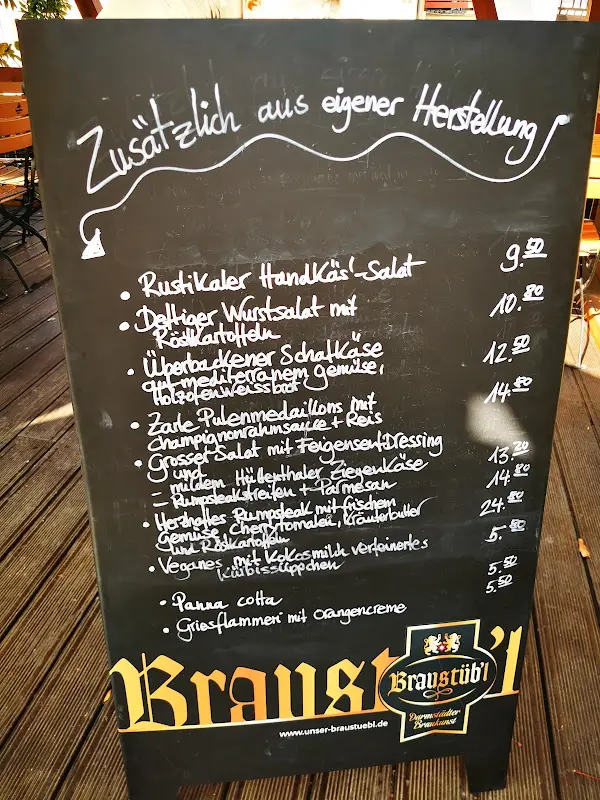 Zusätzlich aus eigener Herstellung
• Rustikaler Handkäs'-Salat 9.50
• Deftiger Wurstsalat mit 10.80
Röstkartoffeln
• Überbackener Schafkäse 12.50
auf mediterranem Gemüse,
Holzofenweissbrot
• Zarte Putenmedaillons mit 14.80
Champignonrahmsauce + Reis
• Grosser Salat mit Feigensenf-Dressing
und
- mildem Hüttenthaler Ziegenkäse 13.20
- Rumpsteakstreifen + Parmesan 14.80
• Herzhaftes Rumpsteak mit frischem 24.80
Gemüse, Cherrytomaten, Kräuterbutter
und Röstkartoffeln
• Veganes, mit Kokosmilch verfeinertes 5.80
Kürbissüppchen
• Panna cotta 5.50
• Griesflammeri mit Orangencreme 5.50
Braustüb'l
Braustüb'l
Darmstädter
Braukunst
www.unser-braustuebl.de